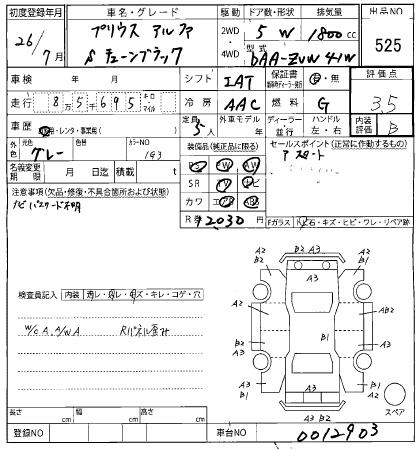 初度登録年月 車名・グレード 駆動 ドア数・形状 排気量 出品NO
26/7月 プリウス アルファ 2WD 5 W 1800cc 525
S チューンブラック 4WD 型式 DAA-ZVW41W
車検 年 月 シフト IAT 保証書 有・無 評価点
走行 8万5千695 キロ マイル 冷房 AAC 燃料 G 3.5
車歴 自家・レンタ・事業用( ) 定員 5人 外車モデル 年 ディーラー 並行 ハンドル 左・右 内装評価 B
外色 元色 グレー 色替 カラーNO 1G3
装備品(純正品に限る) セールスポイント(正常に作動するもの)
PS PW AW
SR TV ナビ
カワ エアB ABS
Pスタート
名義変更期限 月 日迄 積載 t
R券 ¥12030
注意事項(欠品・修復・不具合箇所および状態)
ナビパスワード不明
Fガラス 石・キズ・ヒビ・ワレ・リペア跡
検査員記入 内装 汚レ・スレ・キズ・キレ・コゲ・穴
W/C A.A/W A Rパネル歪み
A2 B2 A3
A2 B2 A3 A2 B1
A2 AB2
B2 B1
A2 B1
A3 B1 A3 A2 B1
A3 B2
スペア
長さ cm 幅 cm 高さ cm
登録NO 車台NO 0012903